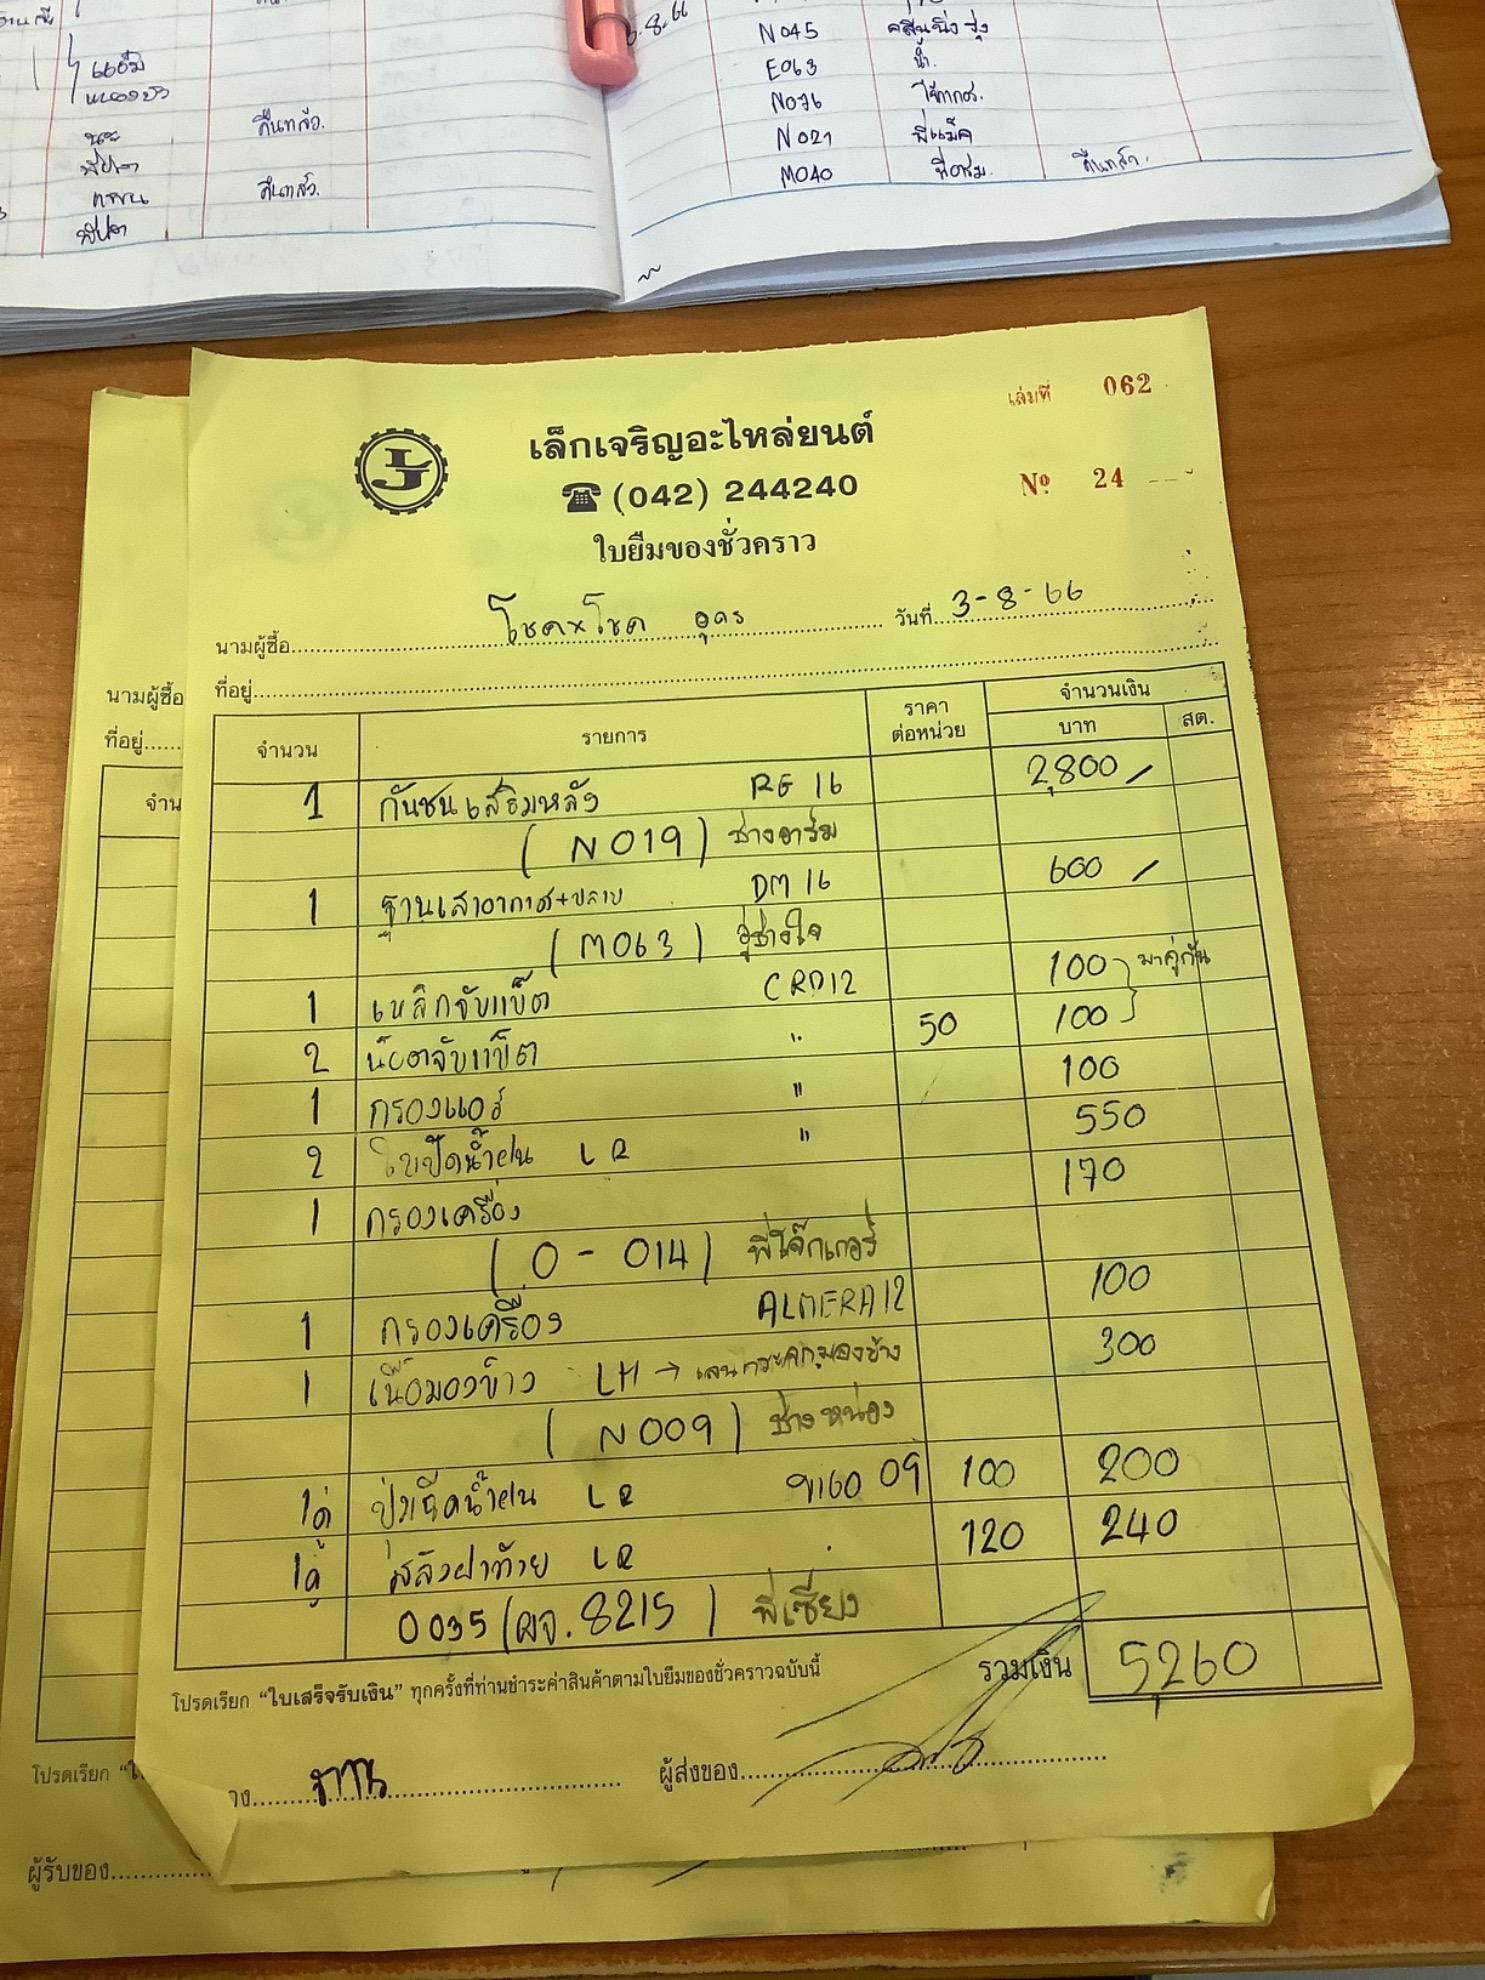 3-8-66
N045
E063 น้ำ.
N076
N021 พี่แม็ค
M040 คืนแล้ว.
คืนแล้ว.
คืนแล้ว.
เล่มที่ 062
เล็กเจริญอะไหล่ยนต์
(042) 244240
Nº 24
ใบยืมของชั่วคราว
นามผู้ซื้อ โชคxโชค อุดร วันที่ 3-8-66
ที่อยู่
จำนวน รายการ ราคาต่อหน่วย จำนวนเงิน
บาท สต.
1 กันชนเสริมหลัง RE 16 2,800
(N019) ช่างอาร์ม
1 ฐานเสาอากาศ+ปลาย DM 16 600
(M063) อู่ช่างใจ
1 เหล็กจับแบ็ต CRD12 100 มาคู่กัน
2 น๊อตจับแบ็ต " 50 100
1 กรองแอร์ " 100
2 ใบปัดน้ำฝน LR " 550
1 กรองเครื่อง 170
(0-014) พี่โจ๊กเกอร์
1 กรองเครื่อง ALMERA12 100
1 เนื้อมองข้าง LH → เลนกระจกมองข้าง 300
(N009) ช่างหน่อง
1คู่ ปุ่มฉีดน้ำฝน LR วีโก้ 09 100 200
1คู่ สลิงฝาท้าย LR 120 240
0035 (ผจ.8215) พี่เซียง
โปรดเรียก “ใบเสร็จรับเงิน” ทุกครั้งที่ท่านชำระค่าสินค้าตามใบยืมของชั่วคราวฉบับนี้ รวมเงิน 5,260
ผู้ส่งของ
นามผู้ซื้อ
ที่อยู่
โปรดเรียก
ผู้รับของ